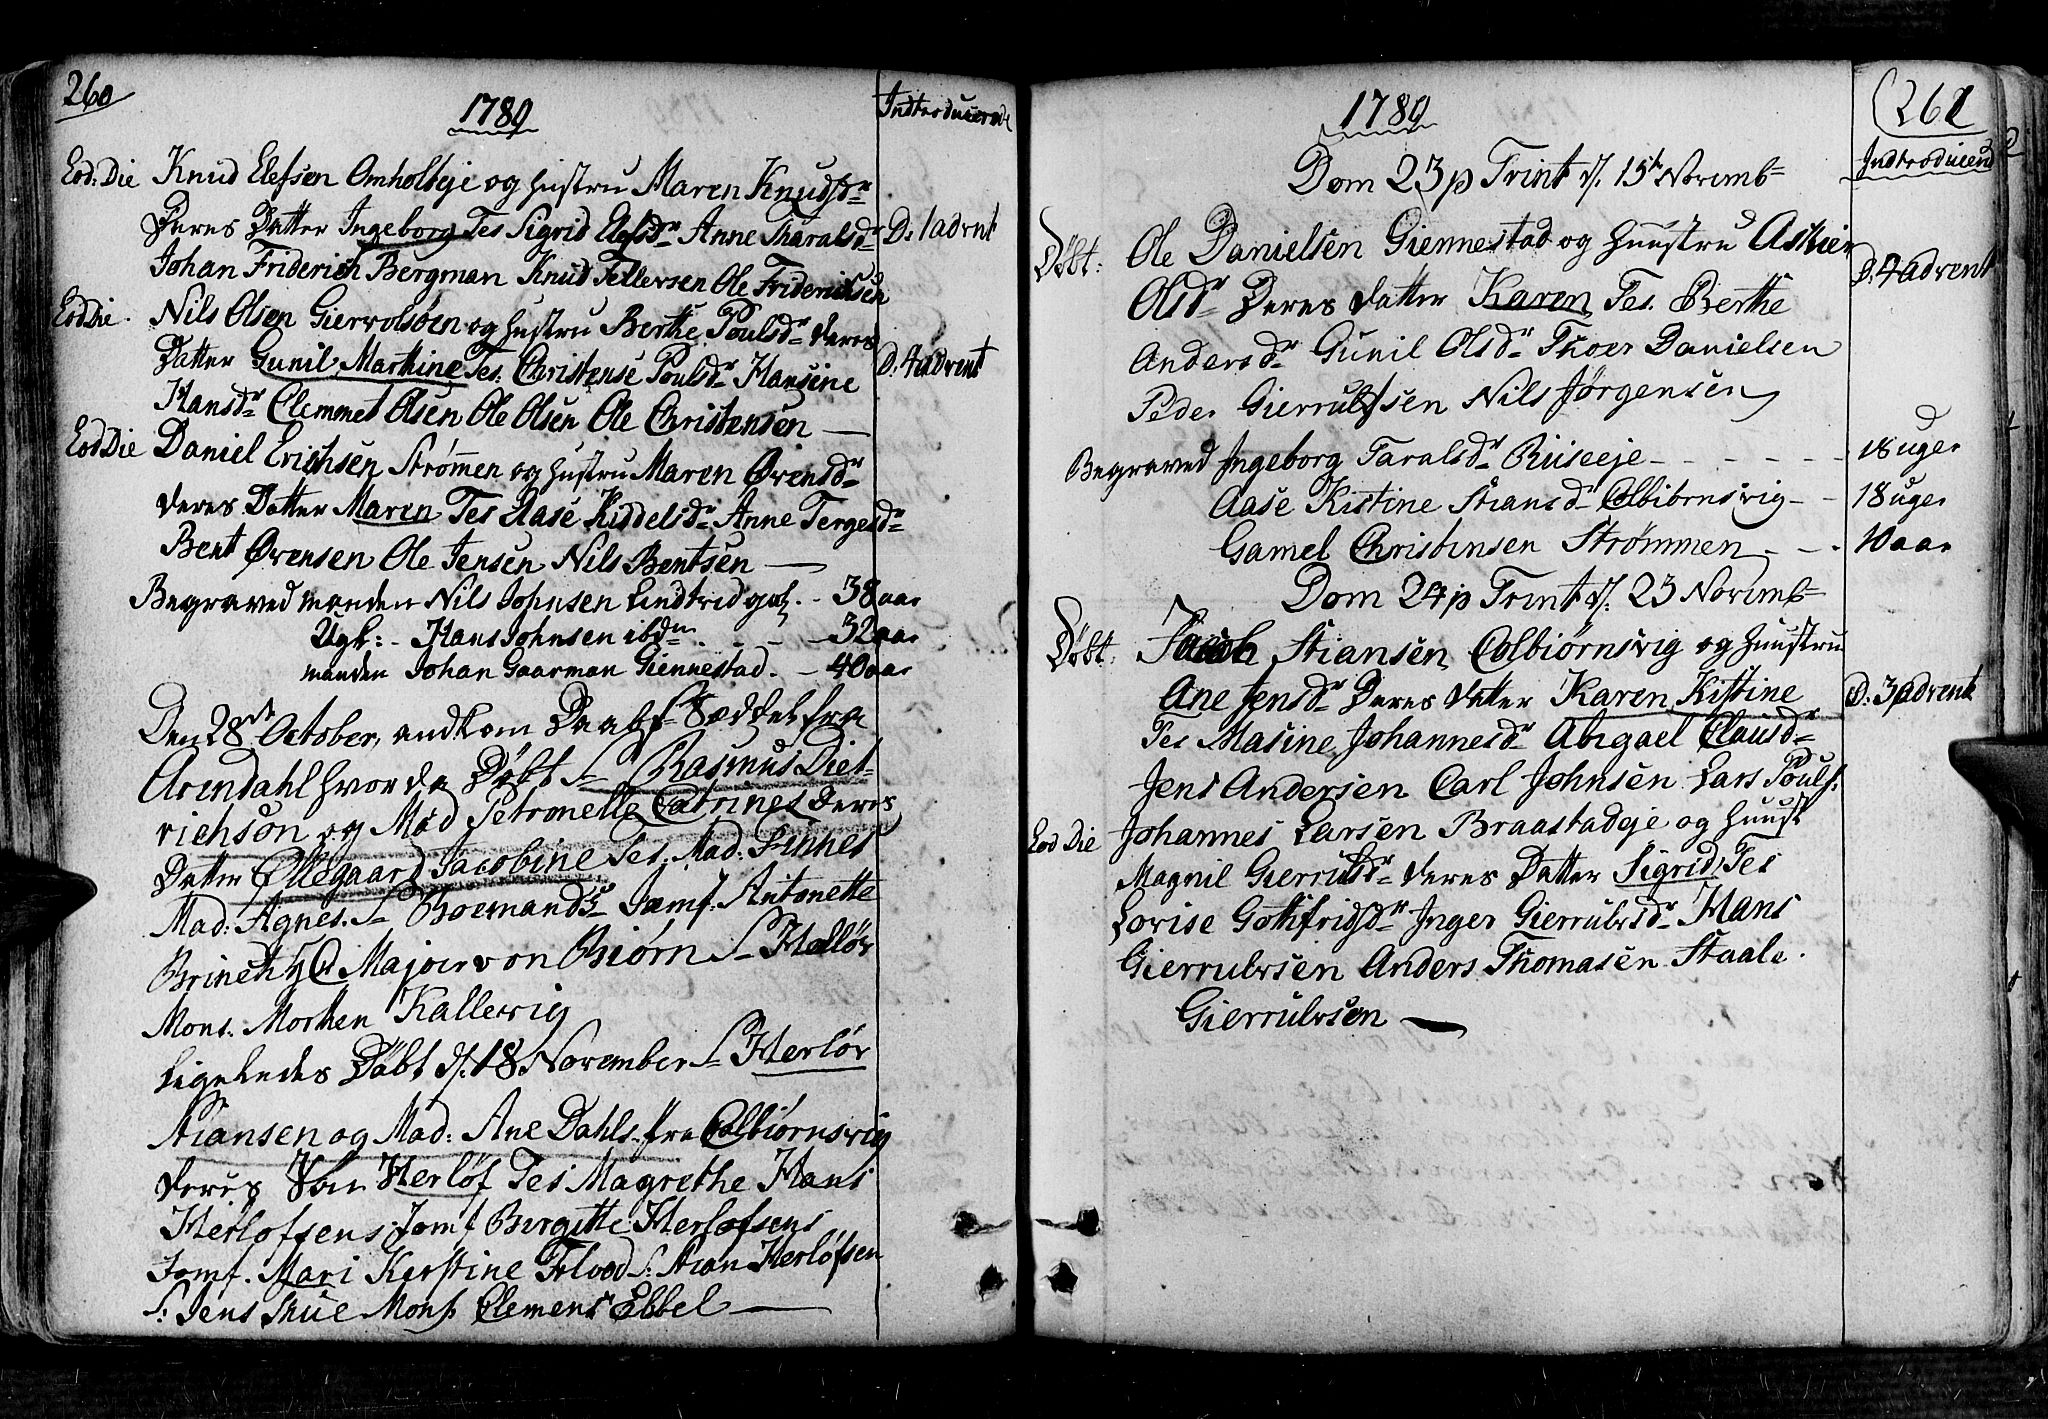 260
1789
Indtroducerede
Eod: Die Knud Elefsen Omholteje og hustru Maren Knudsdr
Deres Datter Ingeborg Tes Sigrid Elefsdr Anne Tharalsdr D: 1 advent
Johan Friderich Bergman Knud Tellefsen Ole Fridericksen
Eod Die. Nils Olsen Giervolsøen og hustru Berthe Poulsdr deres
Datter Gunil Marthine Tes: Christense Poulsdr Hansine D. 4 advent
Hansdr Clemmet Olsen Ole Olsen Ole Christensen
Eod Die Daniel Erichsen Strømen og hustru Maren Ørensdr
deres Datter Maren Tes Aase Kiddelsdr Anne Tergesdr
Bent Ørensen Ole Jensen Nils Bentsen
Begraved manden Nils Johnsen Lindtvid - 38 aar
Ugk: - Hans Johnsen ibdm - - 32 aar
manden Johan Gaarman Giennestad. - 40 aar
Den 28de October, andkom Daabs Seddel fra
Arendahl hvor da Døbt S Rasmus Diet-
richson og Mad Petronelle Catrines Deres
Datter Øllegaard Jacobine Tes: Mad: Finnes
Mad: Agnes. S Boemands Jomf: Antonette
Brinch Majoer von Biørn S Hellør
Mons: Morten Kallevig
Ligeledes Døbt d. 18 November S Herløv
Stiansen og Mad: Ane Dahls fra Colbiørnsvig
deres Søn Herløf Tes Magrethe Hans
Herlofsens Jomf Birgitte Herlofsens
Jomf. Mari Kerstine S: Stian Herløfsen
S: Jens Thue Mons Clemens Ebbel
1789
261
Indtroducered
Dom 23 p Trint d. 15de Novemb
Døbt: Ole Danielsen Giennestad og huustru Askier
Olsdr Deres datter Karen Tes. Berthe D. 4 advent
Andersdr Gunil Olsdr Thoer Danielsen
Peder Gierrulfsen Nils Jørgensen
Begraved Ingeborg Taralsdr Riiseeje - - - - - - 18 uger
Aase Kistine Stiansd Colbiørnsvig - - 18 uger
Gamel Christensen Strømmen - - . 10 aar
Dom 24 p Trint d: 23 Novemb
Døbt. Jacob Stiansen Colbiørnsvig og huustru
Ane Jensdr Deres datter Karen Kistine D. 3 advent
Tes Masine Johannesdr Abigael Clausdr
Jens Andersen Carl Johnsen Lars Pouls:
Eod Die Johannes Larsen Braastadeje og huust
Magnil Gierrulsdr deres Datter Sigrid Tes
Lovise Gotfridsdr Inger Gierrulvsdr Hans
Gierrulvsen Anders Thomasen Staale.
Gierrulvsen